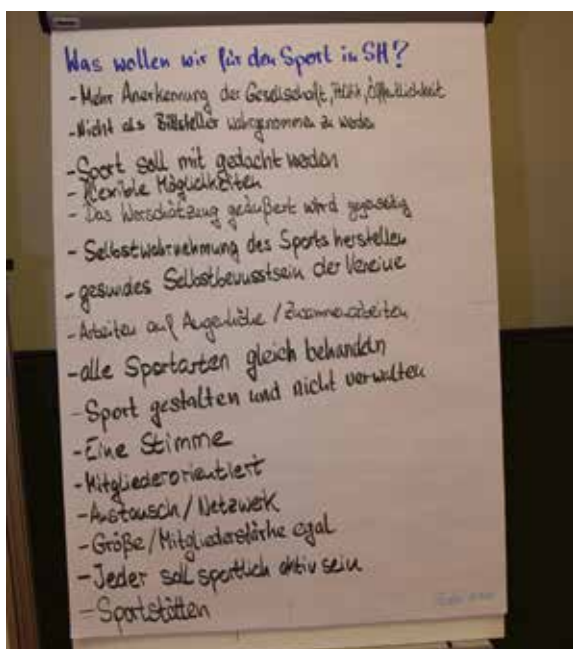 Was wollen wir für den Sport in SH?
- Mehr Anerkennung der Gesellschaft, Politik, Öffentlichkeit
- Nicht als Bittsteller wahrgenommen zu werden
- Sport soll mit gedacht werden
- flexible Möglichkeiten
- Das Wertschätzung geäußert wird gegenseitig
- Selbstwahrnehmung des Sports herstellen
- gesundes Selbstbewusstsein der Vereine
- Arbeiten auf Augenhöhe / Zusammenarbeiten
- alle Sportarten gleich behandeln
- Sport gestalten und nicht verwalten
- Eine Stimme
- Mitgliederorientiert
- Austausch / Netzwerk
- Größe / Mitgliederstärke egal
- Jeder soll sportlich aktiv sein
- Sportstätten